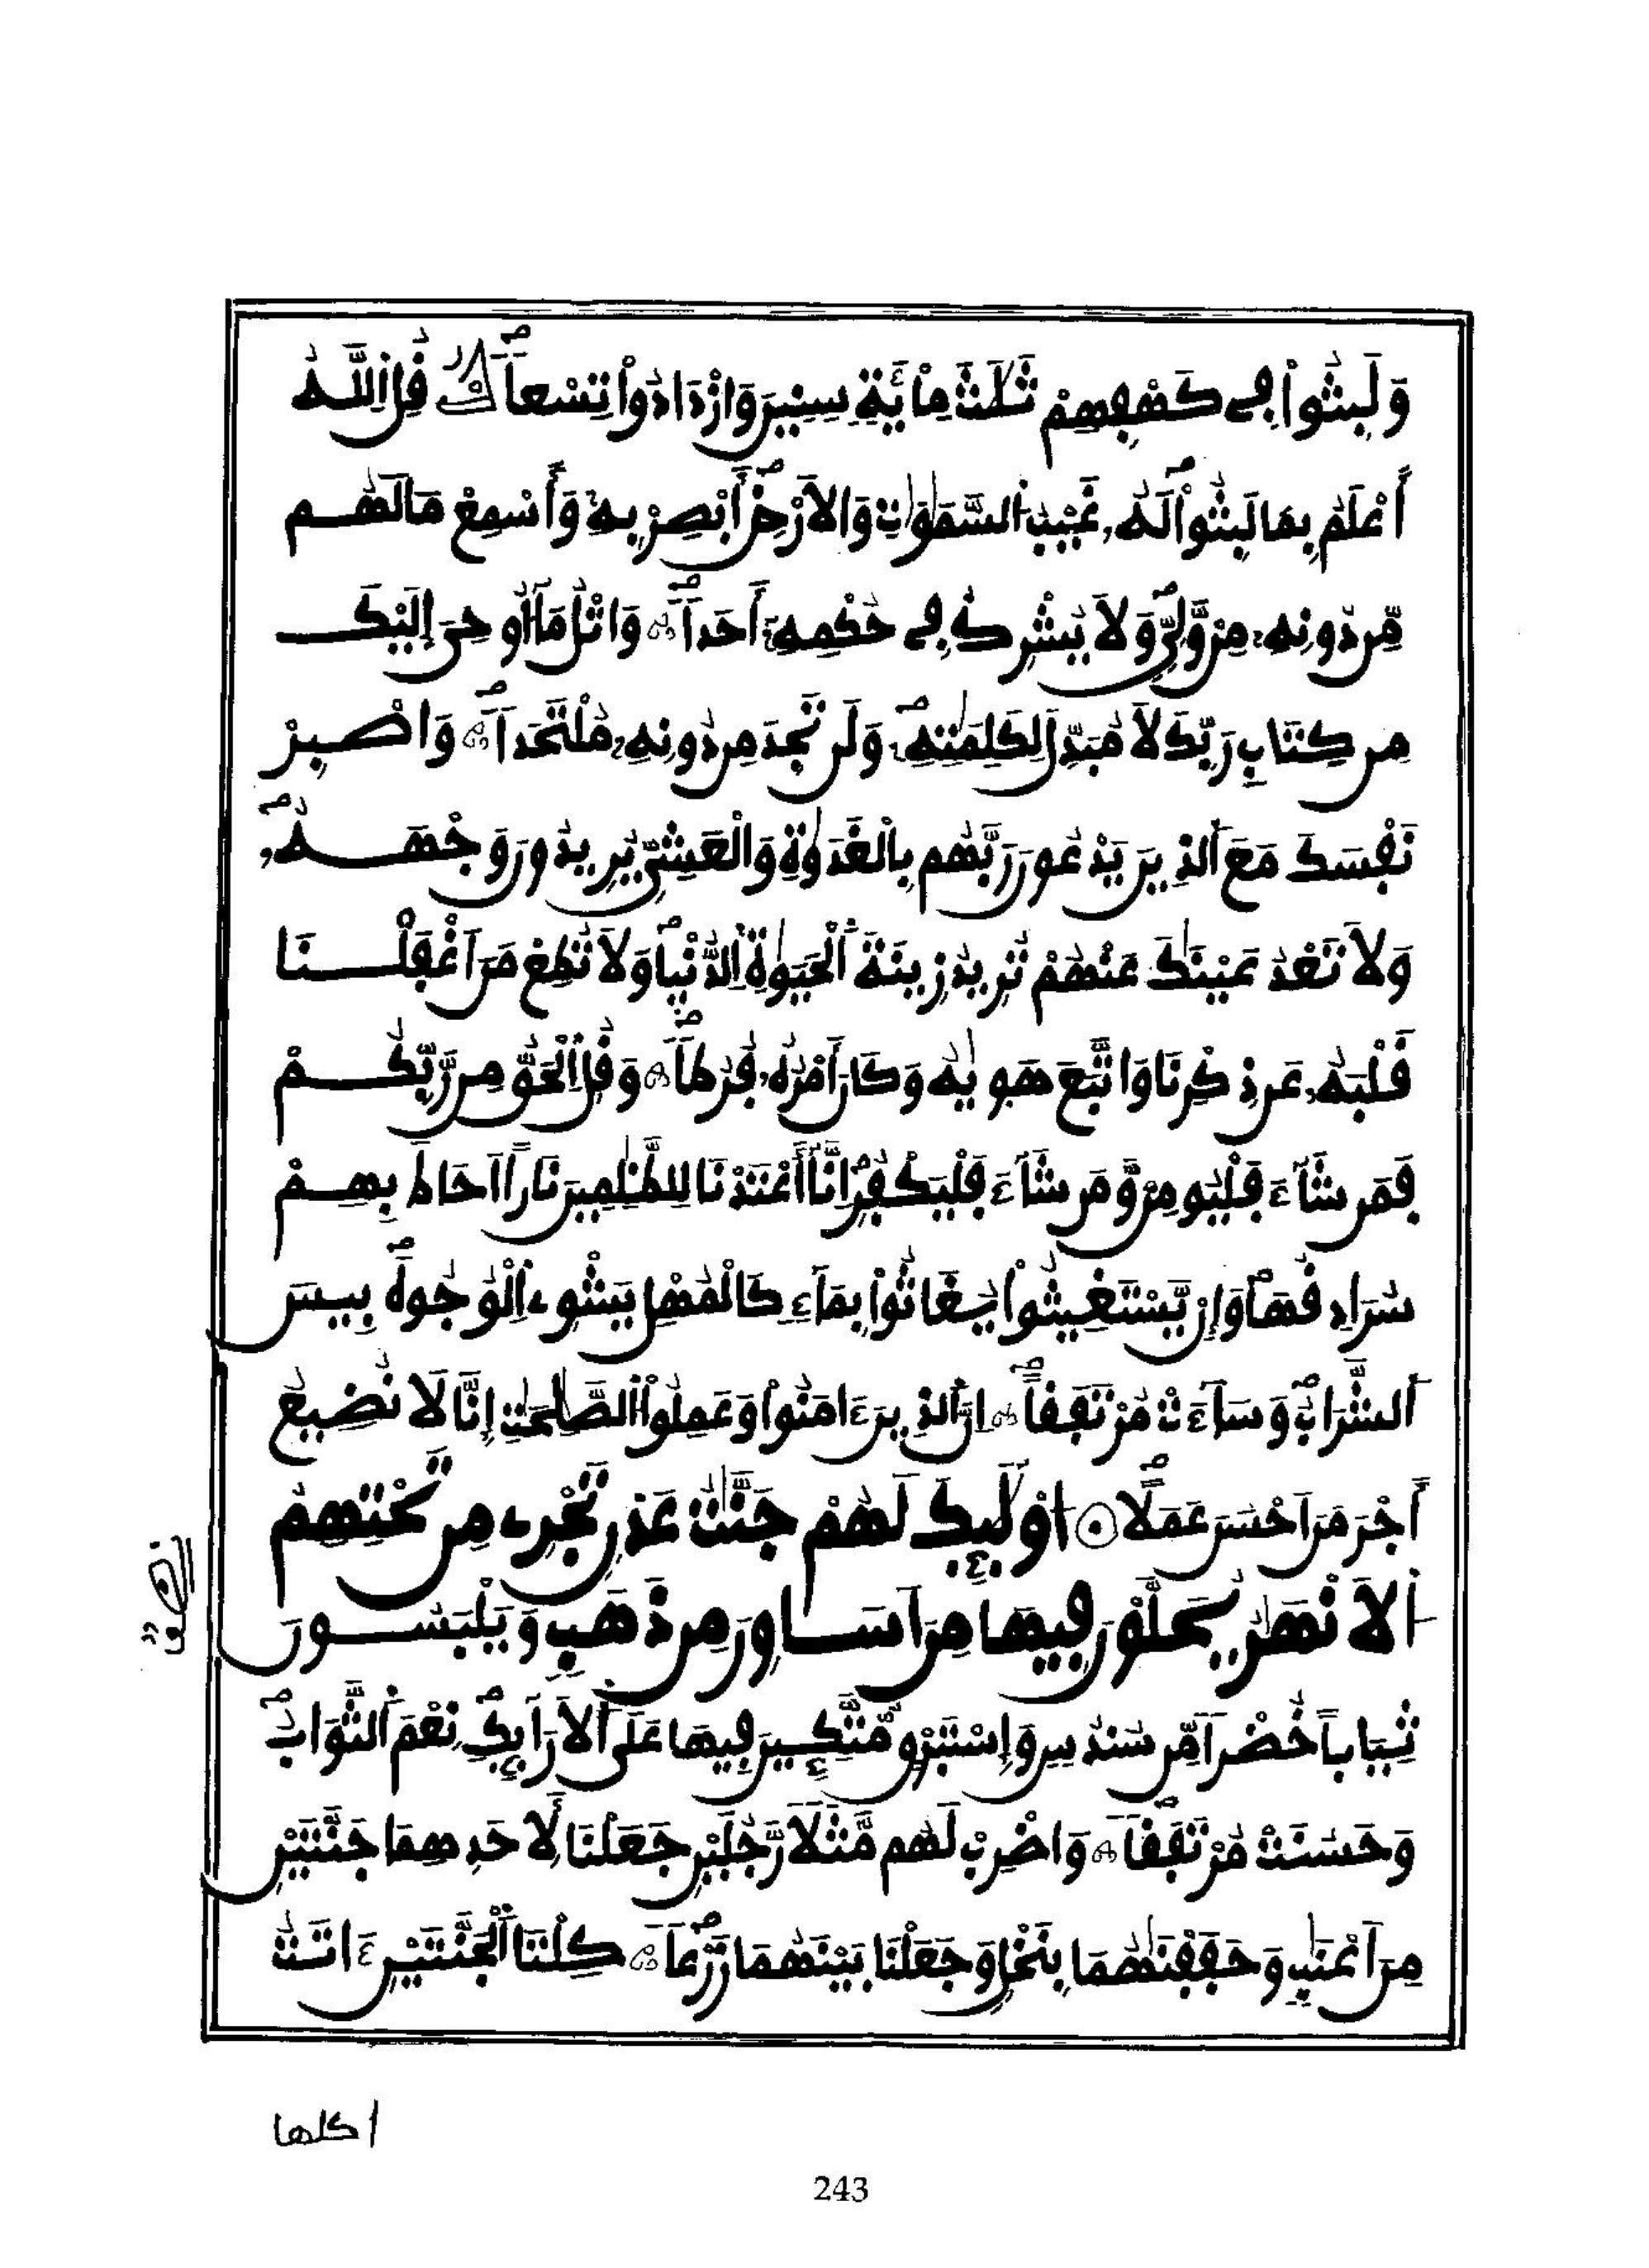 وَلَبِثُواْ فِے كَهْفِهِمْ ثَلَٰثَ مِاْئَةٖ سِنِينَ وَازْدَادُواْ تِسْعاٗۖ قُلِ اِللَّهُ
أَعْلَمُ بِمَا لَبِثُواْۖ لَهُۥ غَيْبُ اُلسَّمَٰوَٰتِ وَالَارْضِۖ أَبْصِرْ بِهِۦ وَأَسْمِعْ مَا لَهُم
مِّن دُونِهِۦ مِنْ وَّلِيّٖۖ وَلَا يُشْرِكُ فِے حُكْمِهِۦٓ أَحَداٗۖ وَاتْلُ مَآ أُوحِيَ إِلَيْكَ
مِن كِتَابِ رَبِّكَ لَا مُبَدِّلَ لِكَلِمَٰتِهِۦۖ وَلَن تَجِدَ مِن دُونِهِۦ مُلْتَحَداٗۖ وَاصْبِرْ
نَفْسَكَ مَعَ اَلذِينَ يَدْعُونَ رَبَّهُم بِالْغَدَوٰةِ وَالْعَشِيِّ يُرِيدُونَ وَجْهَهُۥۖ
وَلَا تَعْدُ عَيْنَٰكَ عَنْهُمْ تُرِيدُ زِينَةَ اَلْحَيَوٰةِ اِلدُّنْيَاۖ وَلَا تُطِعْ مَنَ اَغْفَلْنَا
قَلْبَهُۥ عَن ذِكْرِنَا وَاتَّبَعَ هَوٜيٰهُ وَكَانَ أَمْرُهُۥ فُرُطاٗۖ وَقُلِ اِلْحَقُّ مِن رَّبِّكُمْ
فَمَن شَآءَ فَلْيُومِنْ وَّمَن شَآءَ فَلْيَكْفُرِۖ اِنَّآ أَعْتَدْنَا لِلظَّٰلِمِينَ نَاراً اَحَاطَ بِهِمْ
سُرَادِقُهَاۖ وَإِنْ يَّسْتَغِيثُواْ يُغَاثُواْ بِمَآءٖ كَالْمُهْلِ يَشْوِے اِلْوُجُوهَۖ بِيسَ
اَلشَّرَابُۖ وَسَآءَتْ مُرْتَفَقاًۖ اِنَّ اَلذِينَ ءَامَنُواْ وَعَمِلُواْ اُلصَّٰلِحَٰتِ إِنَّا لَا نُضِيعُ
أَجْرَ مَنَ اَحْسَنَ عَمَلاًۖ اوْلَٰٓئِكَ لَهُمْ جَنَّٰتُ عَدْنٖ تَجْرِے مِن تَحْتِهِمُ
اُلَانْهَٰرُ يُحَلَّوْنَ فِيهَا مِنَ اَسَاوِرَ مِن ذَهَبٖ وَيَلْبَسُونَ
ثِيَاباً خُضْراٗ مِّن سُندُسٖ وَإِسْتَبْرَقٖ مُّتَّكِـِٕينَ فِيهَا عَلَي اَلَارَآئِكِۖ نِعْمَ اَلثَّوَابُۖ
وَحَسُنَتْ مُرْتَفَقاٗۖ وَاضْرِبْ لَهُم مَّثَلاٗ رَّجُلَيْنِ جَعَلْنَا لِأَحَدِهِمَا جَنَّتَيْنِ
مِنَ اَعْنَٰبٖ وَحَفَفْنَٰهُمَا بِنَخْلٖ وَجَعَلْنَا بَيْنَهُمَا زَرْعاٗۖ كِلْتَا اَلْجَنَّتَيْنِ ءَاتَتُ
اكلها
243